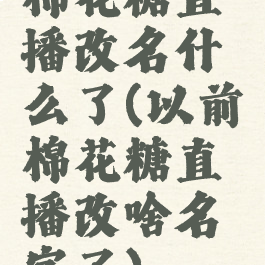 棉花糖直
播改名什
么了(以前
棉花糖直
播改啥名
字了)